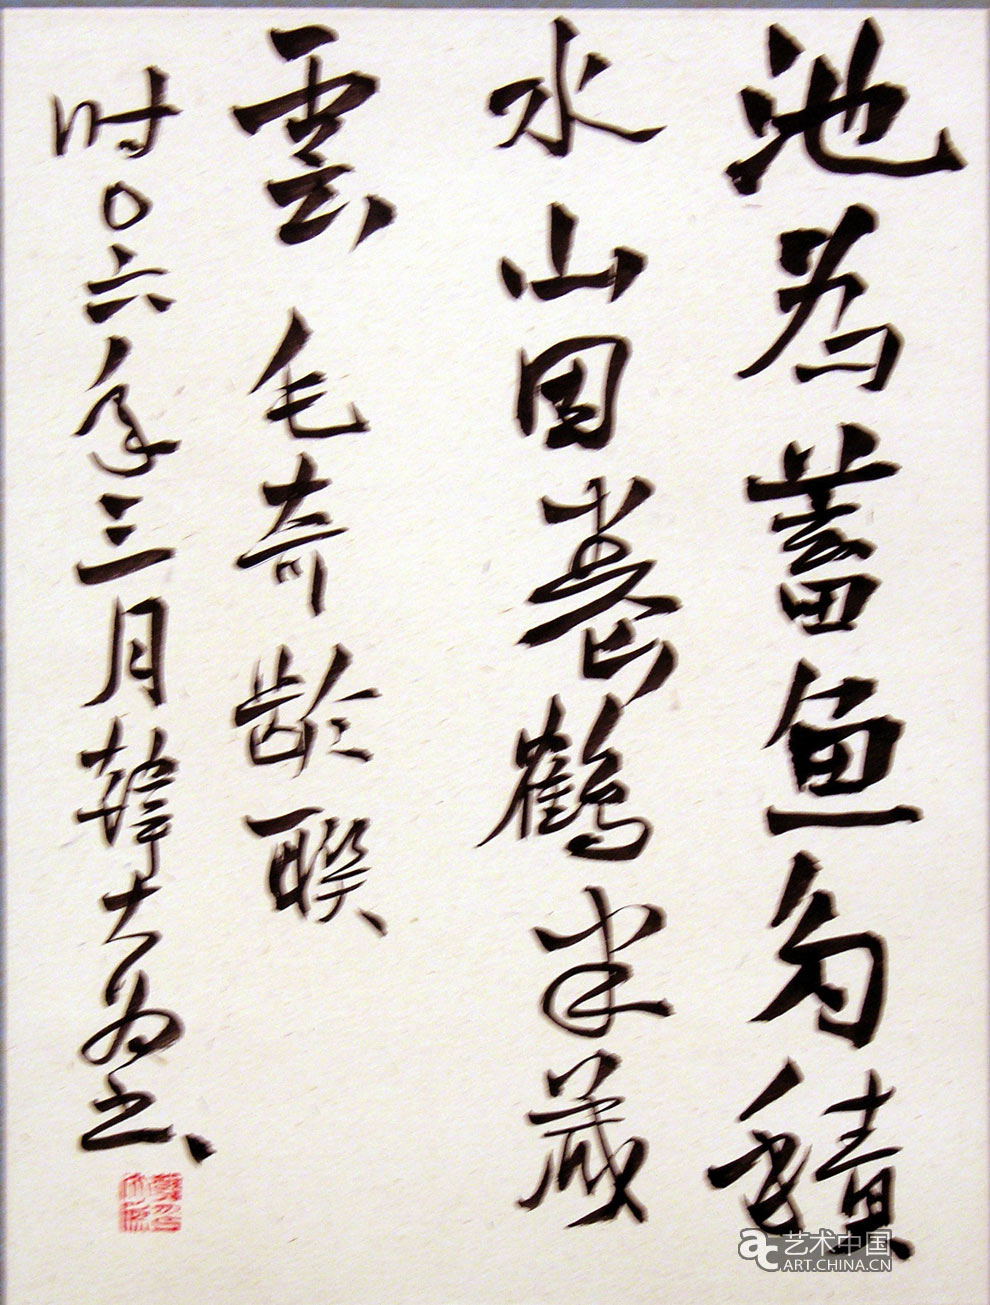 池为蓄鱼勾積
水山因養鶴半藏
雲 毛奇龄聯
时〇六年三月韓大为书
艺术中国
ART.CHINA.CN